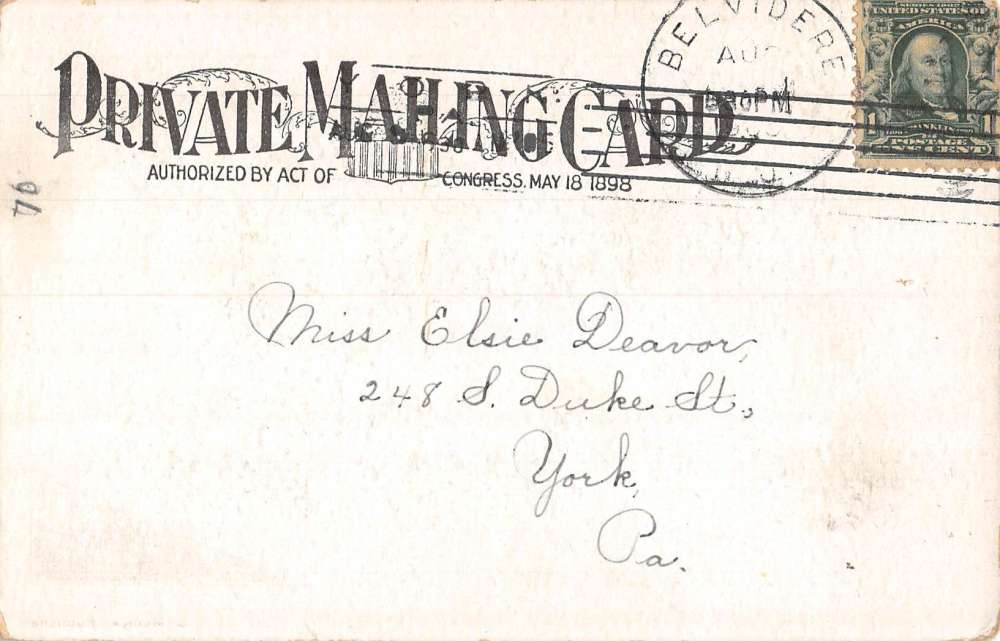 PRIVATE MAILING CARD
AUTHORIZED BY ACT OF CONGRESS, MAY 18 1898
BELVIDERE
N.J.
SERIES 1902
UNITED STATES OF
AMERICA
1 FRANKLIN 1
POSTAGE
ONE CENT
94
Miss Elsie Deavor,
248 S. Duke St.,
York,
Pa.